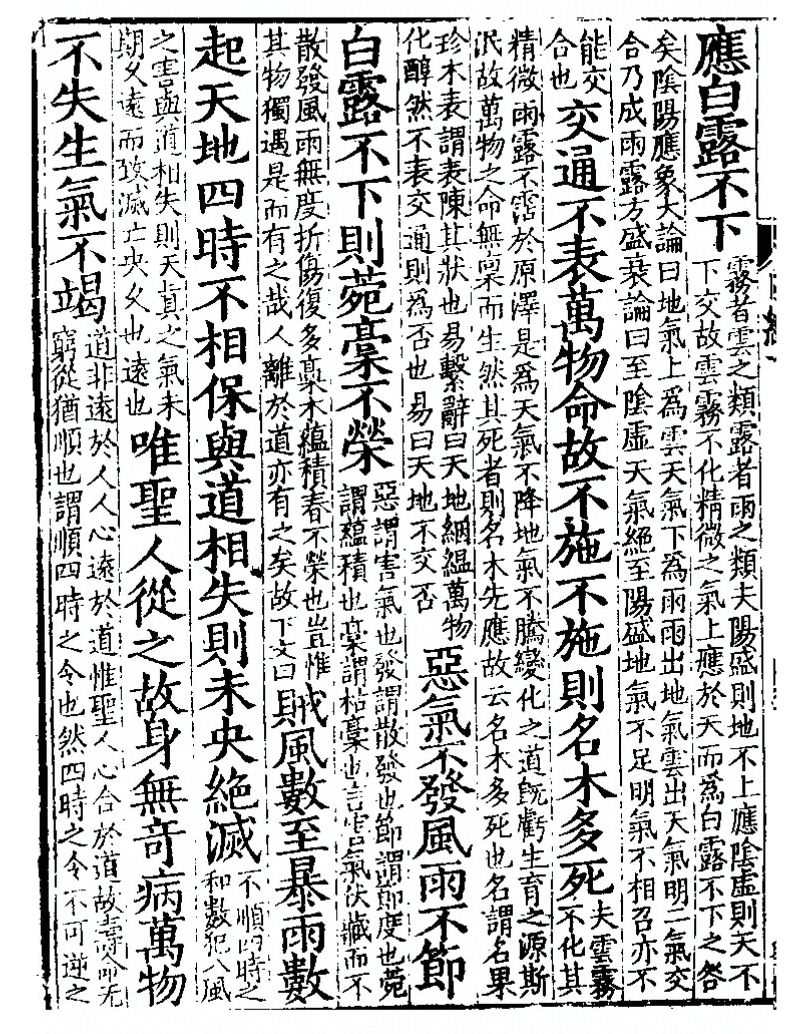 應白露不下霧者雲之類露者雨之類夫陽盛則地不上應陰虛則天不
下交故雲霧不化精微之氣上應於天而為白露不下之咎
矣陰陽應象大論曰地氣上為雲天氣下為雨雨出地氣雲出天氣明二氣交
合乃成雨露方盛衰論曰至陰虛天氣絕至陽盛地氣不足明氣不相召亦不
能交
合也交通不表萬物命故不施不施則名木多死夫雲霧
不化其
精微雨露不霑於原澤是為天氣不降地氣不騰變化之道旣虧生育之源斯
泯故萬物之命無稟而生然其死者則名木先應故云名木多死也名謂名果
珍木表謂表陳其狀也易繫辭曰天地絪縕萬物
化醇然不表交通則為否也易曰天地不交否
惡氣不發風雨不節
白露不下則菀槀不榮惡謂害氣也發謂散發也節謂節度也菀
謂蘊積也槀謂枯槀也言害氣伏藏而不
散發風雨無度折傷復多槀木蘊積春不榮也豈惟
其物獨遇是而有之哉人離於道亦有之矣故下文曰
賊風數至暴雨數
起天地四時不相保與道相失則未央絕滅不順四時之
和數犯八風
之害與道相失則天真之氣未
期久遠而致滅亡央久也遠也
唯聖人從之故身無奇病萬物
不失生氣不竭道非遠於人人心遠於道惟聖人心合於道故壽命无
窮從猶順也謂順四時之令也然四時之令不可逆之